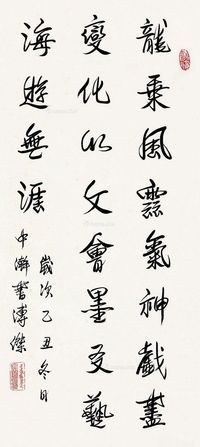 龍乘風雲氣神戲盡
變化以文會墨友藝
海遊無涯
歲次乙丑冬日
中澣書溥傑